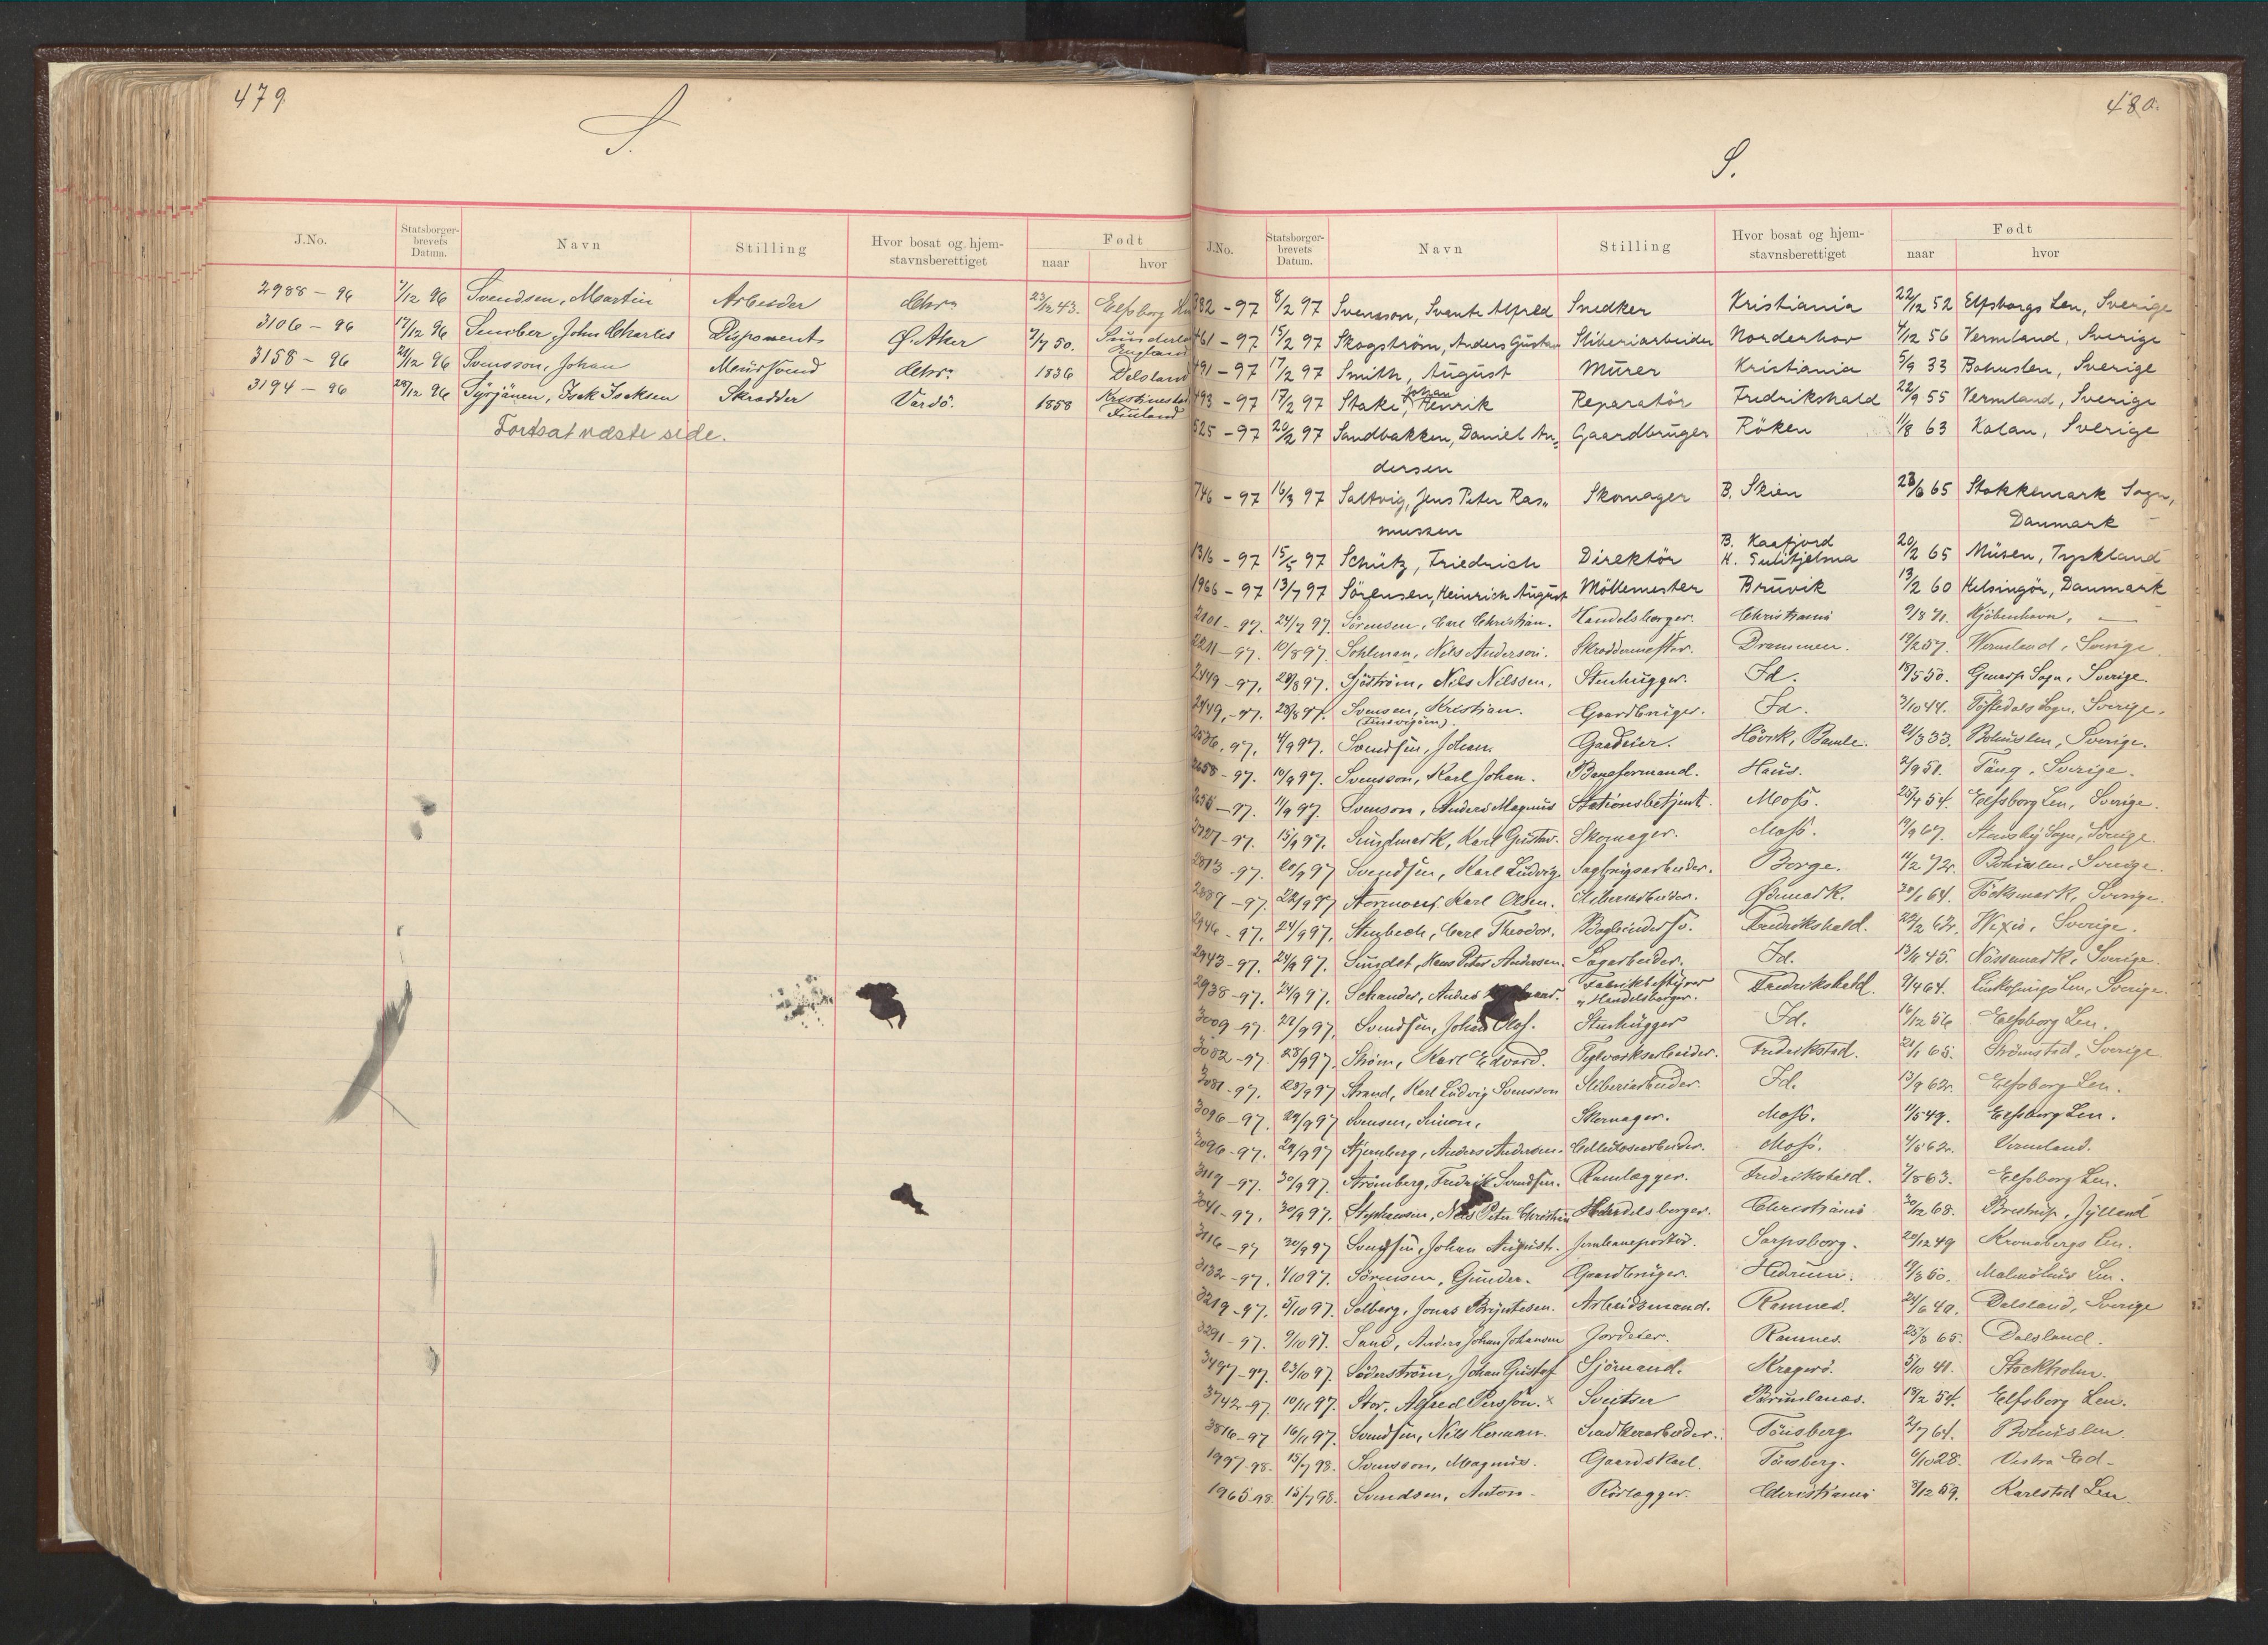 479
S.
J.No. Statsborger-brevets Datum. Navn Stilling Hvor bosat og hjem-stavnsberettiget Født naar hvor
2988 - 96 /12 96 Svendsen, Martin Arbeider Chra 23/12 43. Elfsborg
3106 - 96 17/12 96 Smober, John Charles Disponent Ø. Aker 7/7 50. England
3158 - 96 21/12 96 Svensson, Johan Chra 1836 Dalsland
3194 - 96 28/12 96 Isak Isaksen Skrædder Vardö. 1858 Finland
Fortsat næste side.
480.
S.
J.No. Statsborger-brevets Datum. Navn Stilling Hvor bosat og hjem-stavnsberettiget Født naar hvor
382 - 97 8/2 97 Svensson, Svante Alfred Snedker Kristiania 22/12 52 Elfsborgs Len, Sverige
461 - 97 15/2 97 Skogström, Anders Gustav Sliberiarbeider Norderhov 4/12 56 Vermland, Sverige
491 - 97 17/2 97 Smith, August Murer Kristiania 5/9 33 Bohuslen, Sverige
493 - 97 17/2 97 Stake, Johan Henrik Reparatör Fredrikshald 22/9 55 Vermland, Sverige
525 - 97 20/2 97 Sandbakken, Daniel An- Gaardbruger Röken 11/8 63 Kalan, Sverige
dersen
746 - 97 16/3 97 Saltvig, Jens Peter Ras- Skomager B. Skien 28/6 65 Stokkemark Sogn,
mussen Danmark
B. Kaafjord
1316 - 97 15/5 97 Schütz, Friedrich Direktör H. Sulitjelma 20/2 65 Müsen, Tyskland
1966 - 97 13/7 97 Sörensen, Heinrich August Möllemester Bruvik 13/2 60 Helsingör, Danmark
2101 - 97. 24/7 97. Sörensen, Carl Christian. Handelsborger. Christiania 9/8 71. Kjöbenhavn, —
2211 - 97. 10/8 97. Sohlman, Nils Anderson. Skræddermester. Drammen. 19/2 57. Wermland, Sverige.
2449 - 97. 28/8 97. Sjöström, Nils Nilssen. Stenhugger. Id. 18/5 50. Sogn, Sverige.
2449, - 97. 28/8 97. Svensen, Kristian. Gaardbruger. Id. 3/10 44. Töftedals Sogn, Sverige.
2536, 97. 4/9 97. Svendsen, Johan. Gaardeier. Hövik, Bamle. 21/3 33. Bohuslen, Sverige.
2658 - 97. 10/9 97. Svensson, Karl Johan. Baneformand. Haus. 2/9 51. Täng, Sverige.
2655 - 97. 11/9 97. Svenson, Anders Magnus Stationsbetjent. Moss. 25/4 54. Elfsborg Len, Sverige.
2727 - 97. 15/9 97. Sundmark, Karl Gustav. Skomager. Moss. 19/9 67. Sogn, Sverige.
2873 - 97. 20/9 97 Svendsen, Karl Ludvig. Sagbrugsarbeider. Borge. 11/2 72. Bohuslen, Sverige.
2889 - 97. 22/9 97 Karl Olsen. Sliberiarbeider. Öymark. 30/1 64. Töcksmark, Sverige.
2946 - 97. 24/9 97. Stenbech, Carl Theodor. Bogbindersv. Fredrikshald. 22/2 62. Wexiö, Sverige.
2943 - 97. 24/9 97. Sundet, Hans Peter Andersen. Sagarbeider. Id. 13/6 45. Nössemark, Sverige.
2938 - 97. 24/9 97. Schander, Anders Fabrikbestyrer Fredrikshald. 9/4 64. Linköpings Len, Sverige.
Handelsborger.
3009 - 97. 28/9 97. Svendsen, Johan Olof. Stenhugger Id. 16/12 56 Elfsborg Len.
3082 - 97. 28/9 97. Ström, Karl Edvard. Teglverksarbeider. Fredrikstad. 21/1 65. Strömstad, Sverige
3081 - 97. 28/9 97 Strand, Karl Ludvig Svensson Sliberiarbeider. Id. 13/9 62. Elfsborg Len.
3096 - 97. 29/9 97 Svensen, Simon, Skomager. Moss. 11/5 49. Elfsborg Len.
3096 - 97. 29/9 97 Stjernberg, Anders Andersen. Cellulosearbeider. Moss. 4/5 62. Vermland.
3119 - 97. 30/9 97. Strömberg, Fredrik Svendsen. Rørlægger. Fredrikshald. 7/8 63. Elfsborg Len.
3041 - 97. 30/9 97. Stephansen, Nils Peter Christian Handelsborger. Christiania 30/12 68. Brestrup, Jylland
3116 - 97 30/9 97 Svendsen, Johan August. Jernbaneportør. Sarpsborg. 20/12 49 Kronobergs Len.
3132 - 97. 1/10 97. Sörensen, Gunder. Gaardbruger. Hedrum. 19/3 50. Malmöhus Len.
3219 - 97. 5/10 97. Solberg, Jonas Bryntesen. Arbeidsmand. Ramnes. 24/6 40. Dalsland, Sverige
3291 - 97. 9/10 97. Sand, Anders Johan Johansen Jordeier. Ramnes. 25/3 65. Dalsland.
3497 - 97. 23/10 97. Söderström, Johan Gustaf Sjömand. Kragerö. 5/10 41. Stockholm.
3742 - 97. 10/11 97. Stor, Alfred Persson. × Sveitser Brunlanæs. 18/2 54. Elfsborg Len.
3816 - 97 16/11 97. Svendsen, Nils Herman. Snedkerarbeider. Tönsberg 2/7 64. Bohuslen.
1997 - 98. 15/7 98. Svensson, Magnus. Gaardskarl. Tönsberg. 6/10 28. Vestra Ed -
1965 - 98. 15/7 98. Svendsen, Anton - Rörlægger. Christiania 8/12 59. Karlstad Len.